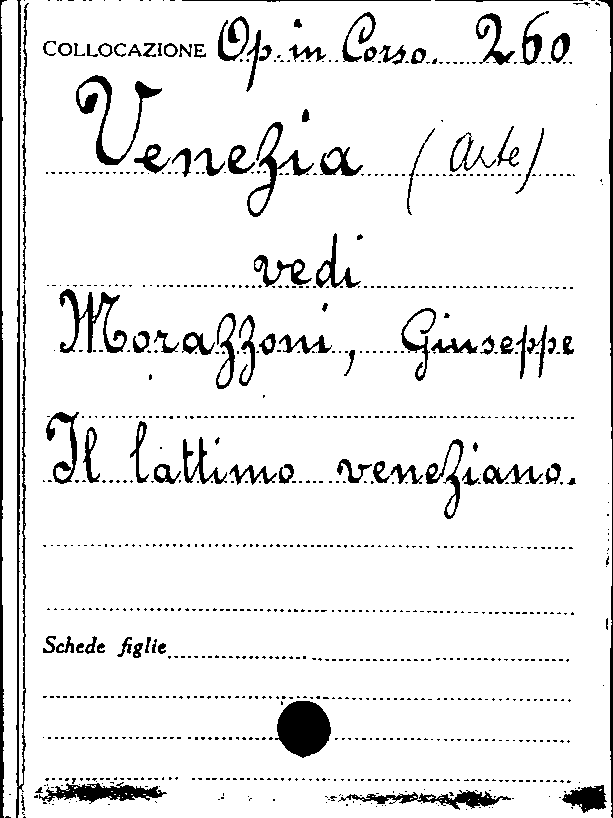 COLLOCAZIONE Op. in Corso. 260
Venezia (Arte)
vedi
Morazzoni, Giuseppe
Il lattimo veneziano.
Schede figlie